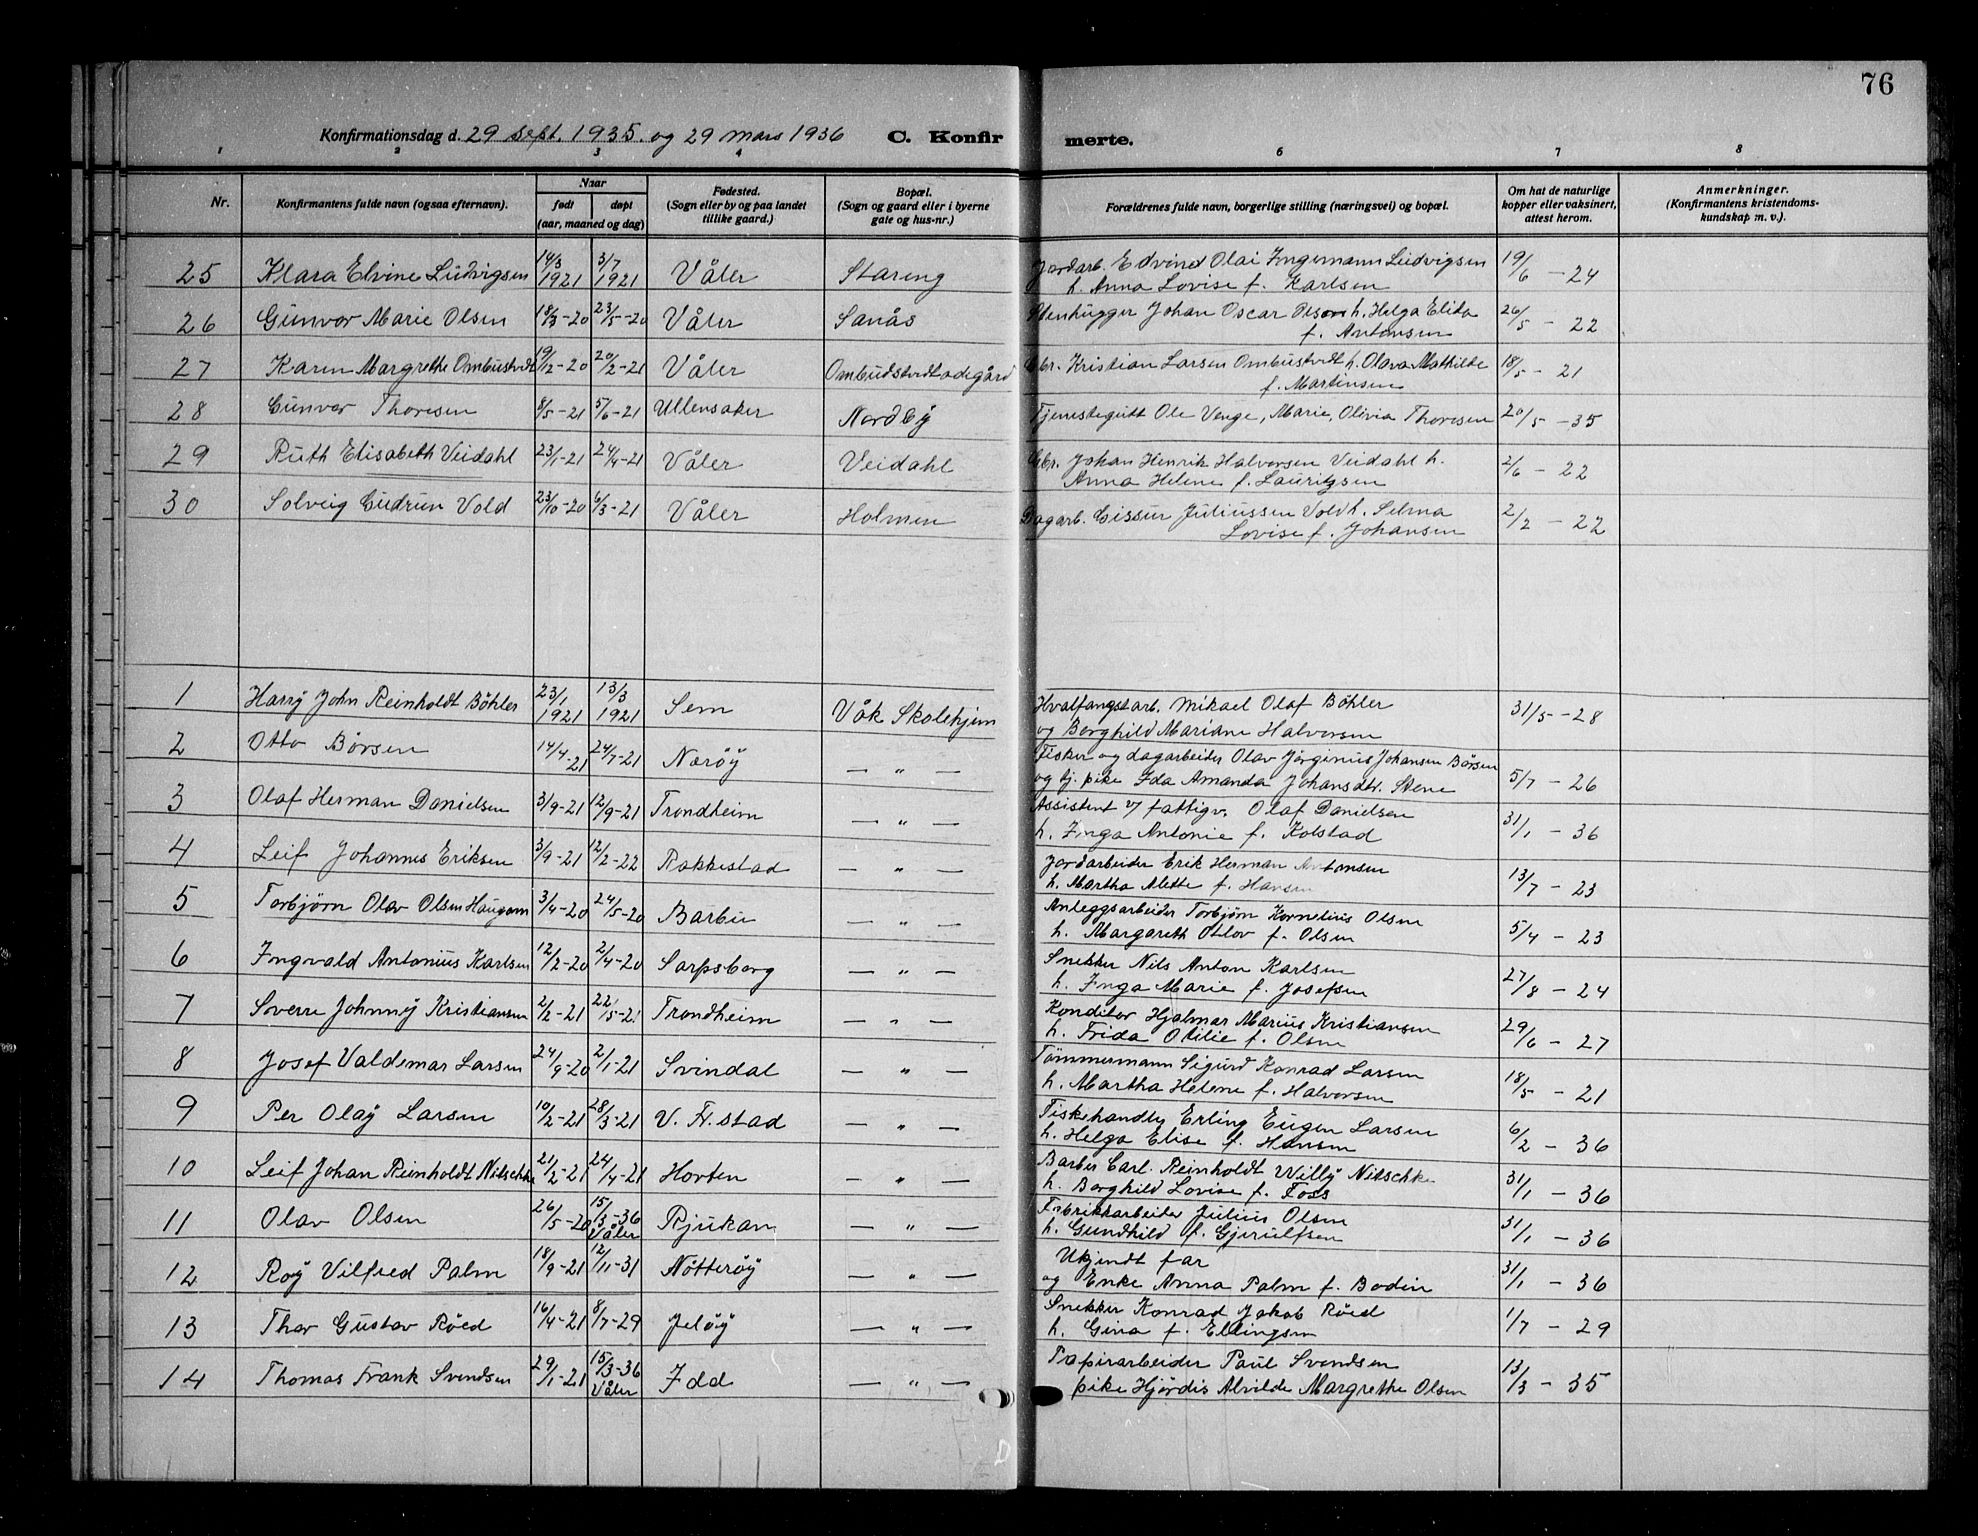 76
Konfirmationsdag d. 29 sept. 1935 og 29 mars 1936 C. Konfir merte.
1 2 3 4 6 7 8
Nr. Konfirmantens fulde navn (ogsaa efternavn). Naar født døpt (aar, maaned og dag) Fødested. (Sogn eller by og paa landet tillike gaard.) Bopæl. (Sogn og gaard eller i byerne gate og hus-nr.) Forældrenes fulde navn, borgerlige stilling (næringsvei) og bopæl. Om hat de naturlige kopper eller vaksinert, attest herom. Anmerkninger. (Konfirmantens kristendoms-kundskap m. v.).
25 Klara Elvine Ludvigsen 14/3 1921 3/7 1921 Våler Stareng Jordarb. Edvind Olai Ingemann Ludvigsen 19/6 - 24
h. Anna Lovise f. Karlsen
26 Gunvor Marie Olsen 18/3-20 23/5-20 Våler Sanås Stenhugger Johan Oscar Olsen h. Helga Elida 26/5 - 22
f. Antonsen
27 Karen Margrethe Ombustvedt 19/2-20 20/2-21 Våler Ombudstvedtødegård Gbr. Kristian Larsen Ombustvedt h. Olava Mathilde 18/5 - 21
f. Martinsen
28 Gunvor Thoresen 8/5-21 5/6-21 Ullensaker Nordby Tjenestegutt Ole Venge, Marie, Olivia Thoresen 20/5 - 35
29 Ruth Elisabeth Veidahl 23/1-21 24/4-21 Våler Veidahl Gbr. Johan Henrik Halvorsen Veidahl h. 2/6 - 22
Anna Helene f. Lauritzsen
30 Solveig Gudrun Vold 23/10-20 6/3-21 Våler Holmen Dagarb. Gissur Juliussen Vold h. Selma 2/2 - 22
Lovise f. Johansen
1 Harry John Reinholdt Böhler 23/1 1921 13/3 1921 Sem Våk Skolehjem Hvalfangstarb. Mikael Olaf Böhler 31/5 - 28
og Borghild Mariane Halvorsen
2 Otto Børsen 14/4-21 24/7-21 Nærøy — " — Fisker og dagarbeider Olav Jörginius Johansen Børsen 5/7 - 26
og tj. pike Ida Amanda Johansdtr. Stene
3 Olaf Herman Danielsen 3/9-21 12/9-21 Trondheim — " — Assistent v/ fattigv. Olaf Danielsen 31/1 - 36
h. Inga Antonie f. Kolstad
4 Leif Johannes Eriksen 3/9-21 12/2-22 Rakkestad — " — Jordarbeider Erik Herman Antonsen 13/7 - 23
h. Martha Alette f. Hansen
5 Torbjørn Olav Olsen Haugom 3/4-20 24/5-20 Barbu — " — Anleggsarbeider Torbjørn Kornelius Olsen 5/4 - 23
h. Margareth Otlov f. Olsen
6 Ingvald Antonius Karlsen 12/2-20 2/4-20 Sarpsborg — " — Snekker Nils Anton Karlsen 27/8 - 24
h. Inga Marie f. Josefsen
7 Sverre Johnny Kristiansen 2/2-21 22/5-21 Trondheim — " — Konditor Hjalmar Marius Kristiansen 29/6 - 27
h. Frida Otilie f. Olsen
8 Josef Valdemar Larsen 24/9-20 2/1-21 Svindal — " — Tömmermann Sigurd Konrad Larsen 18/5 - 21
h. Martha Helene f. Halvorsen
9 Per Olaf Larsen 10/2-21 28/3-21 V. Fr.stad — " — Fiskehandler Erling Eugen Larsen 6/2 - 36
h. Helga Elise f. Hansen
10 Leif Johan Reinholdt Nitschke 21/2-21 24/4-21 Horten — " — Barber Carl. Reinholdt Willy Nitschke 31/1 - 36
h. Borghild Lovise f. Foss
11 Olav Olsen 26/5-20 15/3-36 Våler Rjukan — " — Fabrikkarbeider Julius Olsen 31/1 - 36
h. Gundhild f. Gjerulfsen
12 Roy Vilfred Palm 18/9-21 12/11-31 Nötteröy — " — Ukjendt far 31/1 - 36
og Enke Anna Palm f. Bodin
13 Thor Gustav Röed 16/4-21 8/7-29 Jelöy — " — Snekker Konrad Jakob Röed 1/7 - 29
h. Gina f. Ellingsen
14 Thomas Frank Svendsen 29/1-21 15/3-36 Våler Idd — " — Papirarbeider Paul Svendsen 13/3 - 35
pike Hjördis Alvilde Margrethe Olsen